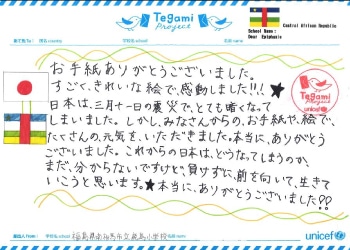 Tegami
Project
Central African Republic
School Name :
Deer Epiphanie
お手紙ありがとうございました。
すごく、きれいな絵で、感動しました!!!★
日本は、三月十一日の震災で、とても暗くなって
しまいました。しかし、みなさんからの、お手紙や、絵で、
たくさんの、元気を、いただきました。本当に、ありがとう
ございました。これからの日本は、どうなってしまうのか、
まだ、分からないですけど、負けずに、前を向いて、生きて
いこうと思います。★本当に、ありがとうございました!?
Tegami
Project
福島県南相馬市立鹿島小学校
unicef